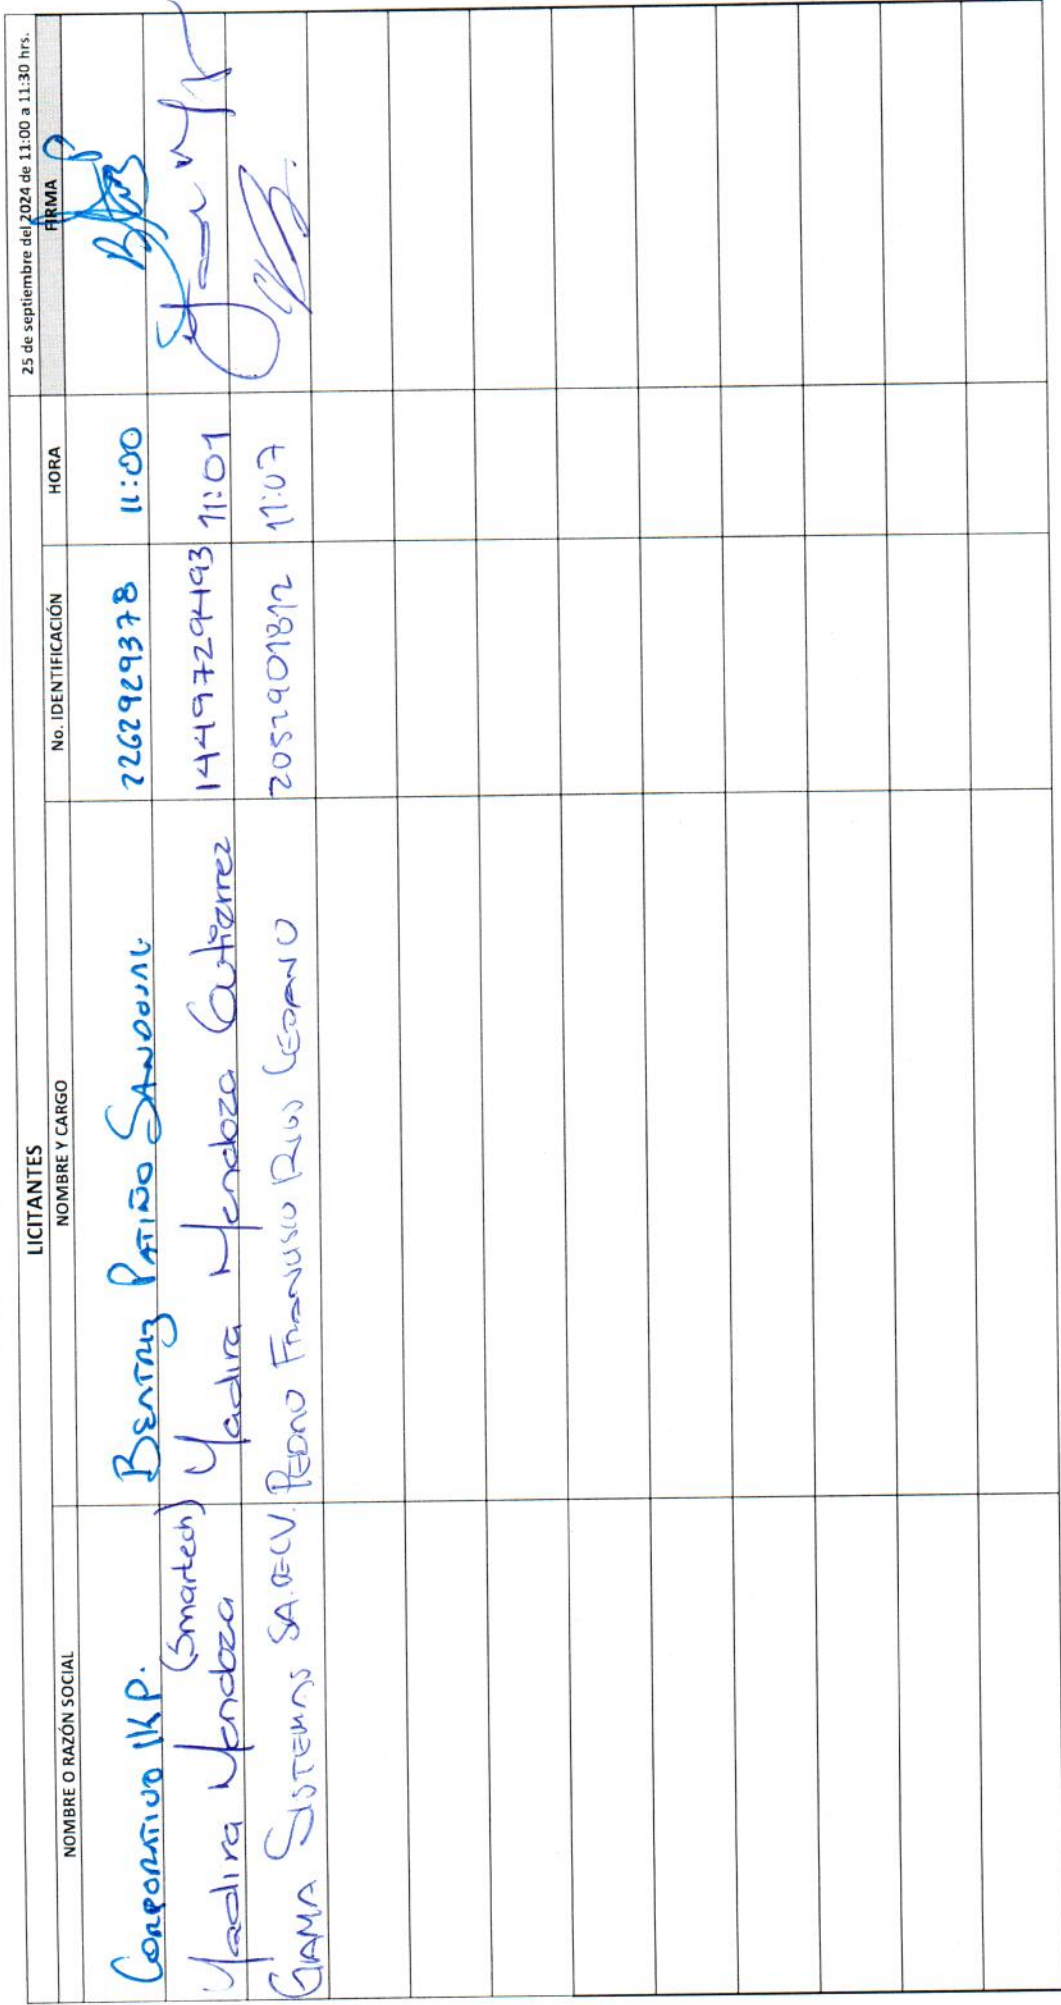 25 de septiembre del 2024 de 11:00 a 11:30 hrs.
LICITANTES
NOMBRE O RAZÓN SOCIAL NOMBRE Y CARGO No. IDENTIFICACIÓN HORA FIRMA
CORPORATIVO IKP. BEATRIZ PATIÑO SANDOVAL 2262929378 11:00
(Smartech)
Yadira Mendoza Yadira Mendoza Gutiérrez 1449729493 11:01
GAMA SISTEMAS SA. DE CV. PEDRO FRANCISCO RIOS 2052901812 11:07